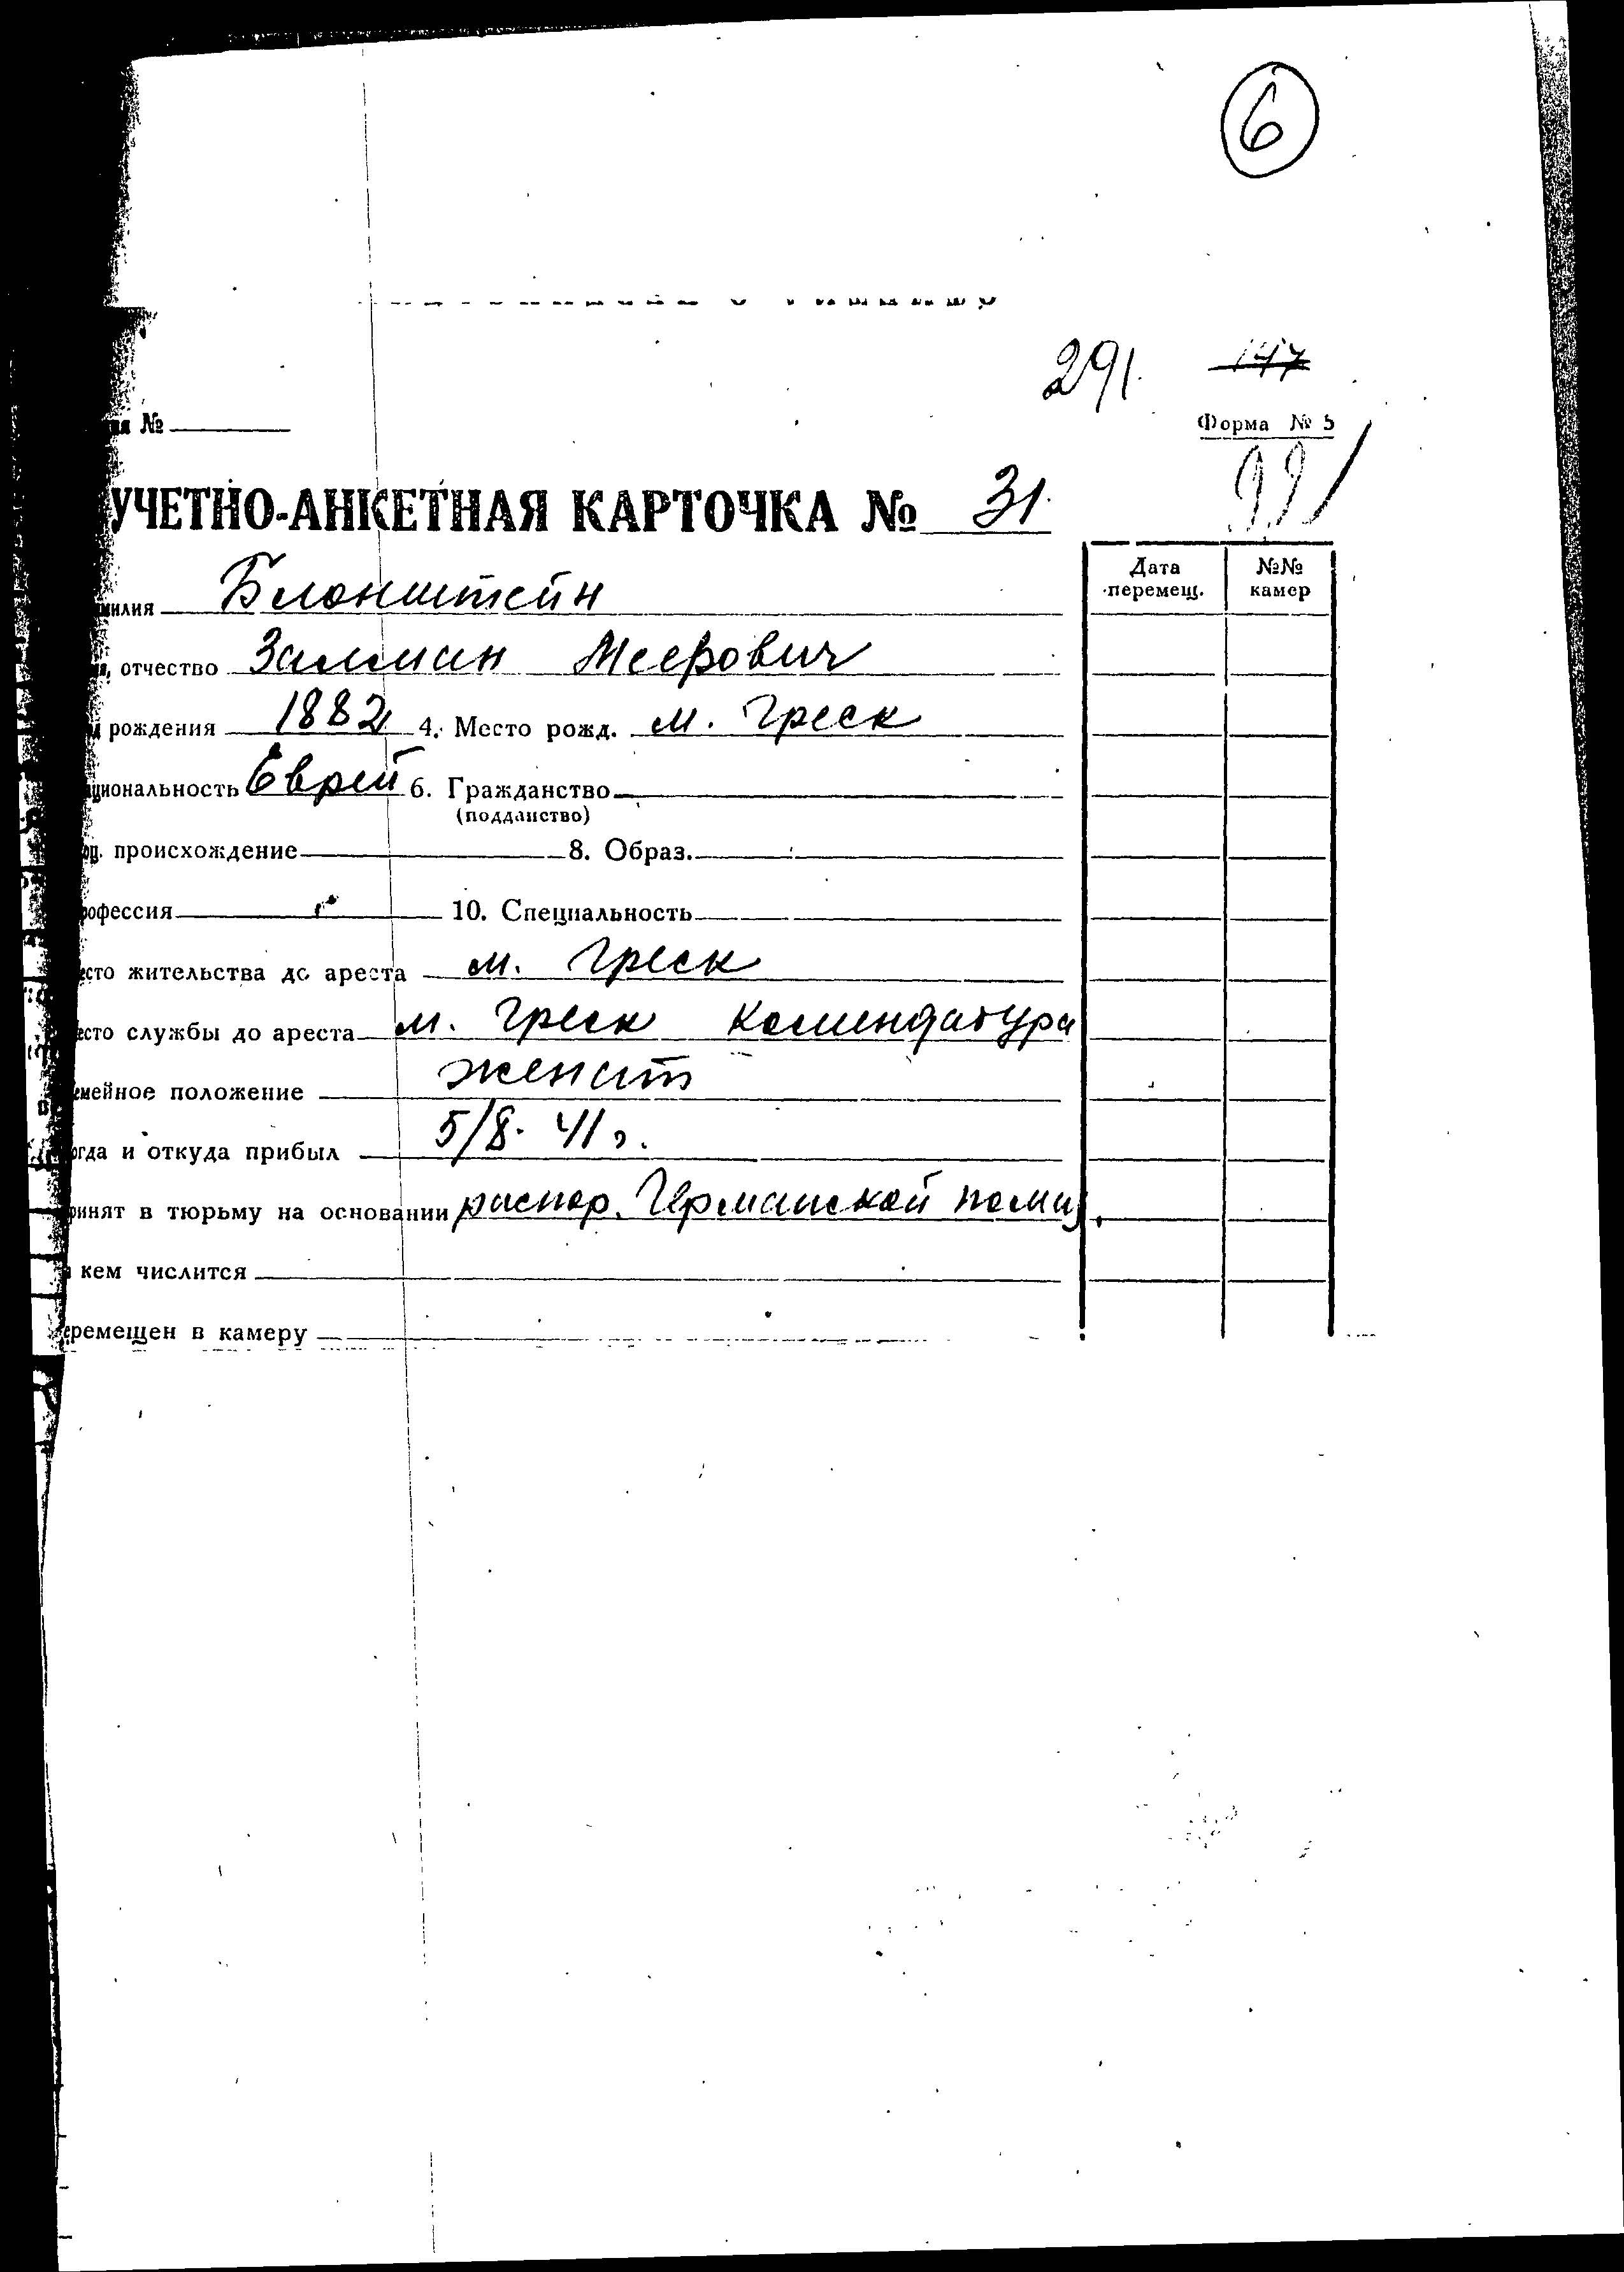 6
291. 147
ия №
Форма № 5
УЧЕТНО-АНКЕТНАЯ КАРТОЧКА № 31.
Дата перемещ. №№ камер
милия Блонштейн
отчество Залман Меерович
рождения 1882 4. Место рожд. м. Греск
циональность Еврей 6. Гражданство
(подданство)
оц. происхождение 8. Образ.
рофессия 10. Специальность
есто жительства до ареста м. Греск
есто службы до ареста м. Греск комендатура
емейное положение женат
огда и откуда прибыл 5/8. 41 г.
ринят в тюрьму на основании распор. Германской полиц.
кем числится
еремещен в камеру